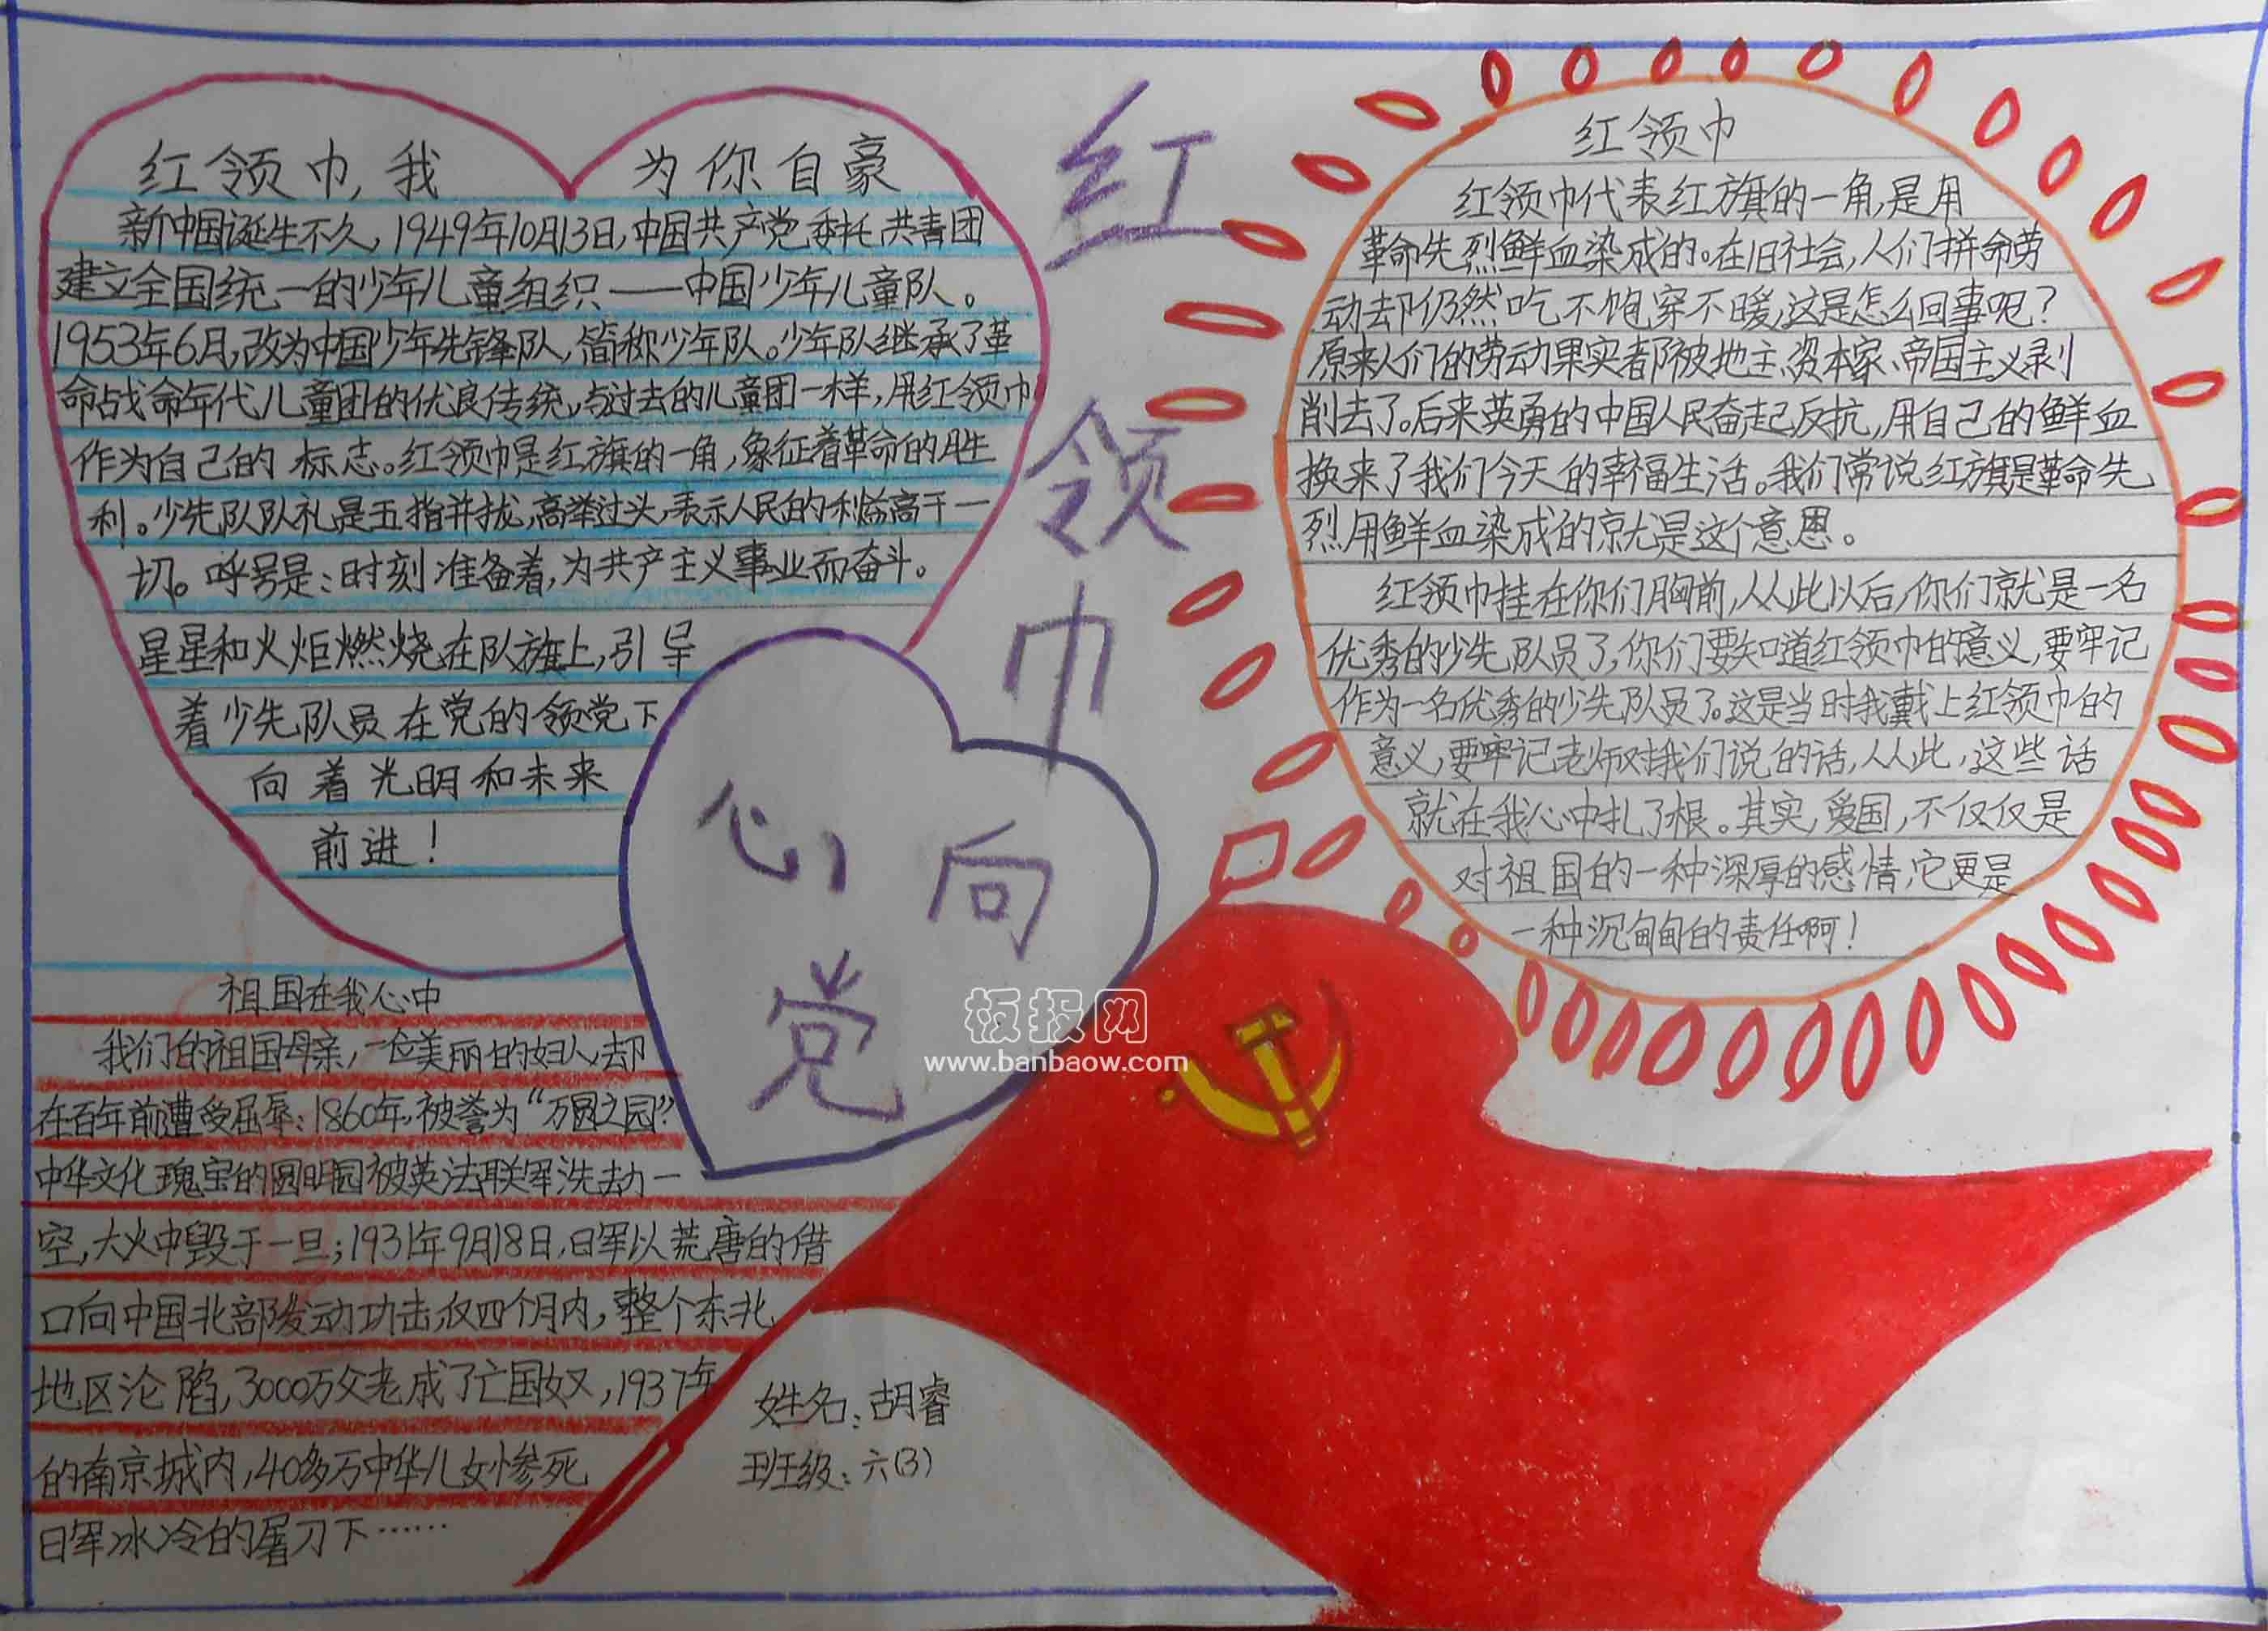 红领巾,我为你自豪
新中国诞生不久,1949年10月13日,中国共产党委托共青团
建立全国统一的少年儿童组织——中国少年儿童队。
1953年6月,改为中国少年先锋队,简称少年队。少年队继承了革
命战命年代儿童团的优良传统,与过去的儿童团一样,用红领巾
作为自己的标志。红领巾是红旗的一角,象征着革命的胜
利。少先队队礼是五指并拢,高举过头,表示人民的利益高于一
切。呼号是:时刻准备着,为共产主义事业而奋斗。
星星和火炬燃烧在队旗上,引导
着少先队员在党的领党下
向着光明和未来
前进!
红领巾
心向党
红领巾
红领巾代表红旗的一角,是用
革命先烈鲜血染成的。在旧社会,人们拼命劳
动去却仍然吃不饱穿不暖,这是怎么回事呢?
原来人们的劳动果实都被地主、资本家、帝国主义剥
削去了。后来英勇的中国人民奋起反抗,用自己的鲜血
换来了我们今天的幸福生活。我们常说红旗是革命先
烈用鲜血染成的就是这个意思。
红领巾挂在你们胸前,从此以后,你们就是一名
优秀的少先队员了,你们要知道红领巾的意义,要牢记
作为一名优秀的少先队员了。这是当时我戴上红领巾的
意义,要牢记老师对我们说的话,从此,这些话
就在我心中扎了根。其实,爱国,不仅仅是
对祖国的一种深厚的感情,它更是
一种沉甸甸的责任啊!
祖国在我心中
我们的祖国母亲,一位美丽的妇人,却
在百年前遭受屈辱:1860年,被誉为“万圆之园”?
中华文化瑰宝的圆明园被英法联军洗劫一
空,大火中毁于一旦;1931年9月18日,日军以荒唐的借
口向中国北部发动功击,仅四个月内,整个东北
地区沦陷,3000万父老成了亡国奴,1937年
的南京城内,40多万中华儿女惨死
日军冰冷的屠刀下……
姓名:胡睿
班级:六(3)
板报网
www.banbaow.com